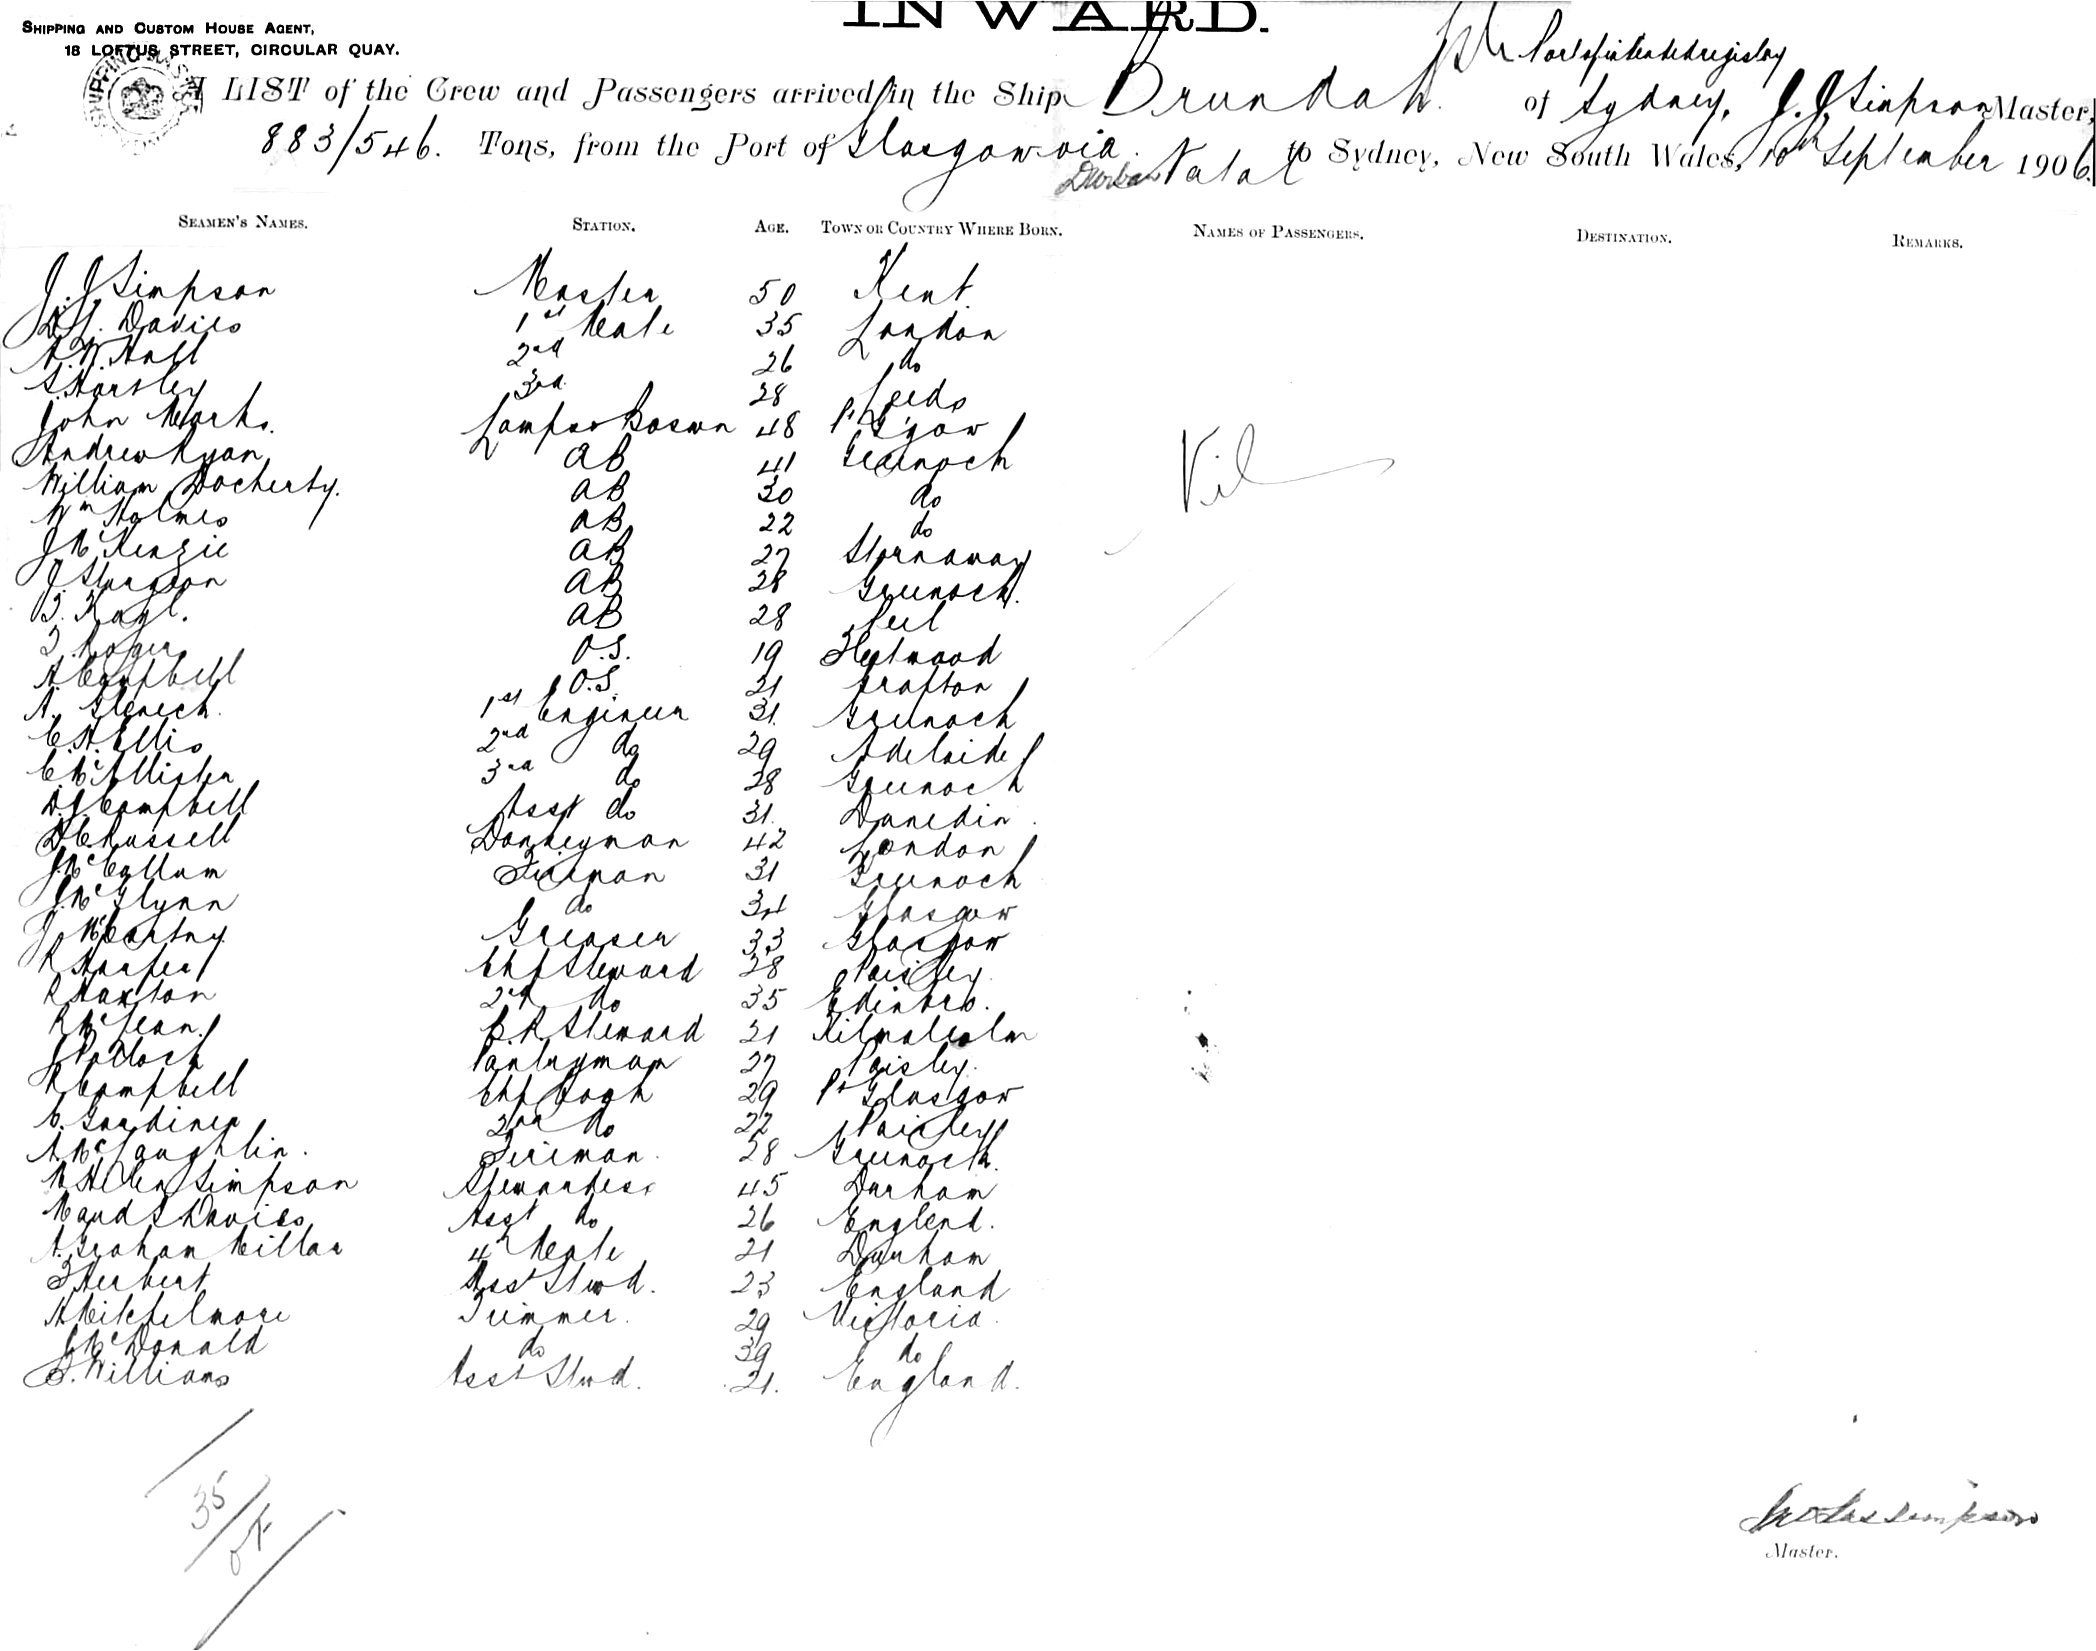 INWARD.
SHIPPING AND CUSTOM HOUSE AGENT,
18 LOFTUS STREET, CIRCULAR QUAY.
A LIST of the Crew and Passengers arrived in the Ship Orundah. of Sydney, J. J. Simpson Master,
883/546. Tons, from the Port of Glasgow via Durban Natal to Sydney, New South Wales, 10th September 1906.
SEAMEN'S NAMES. STATION. AGE. TOWN OR COUNTRY WHERE BORN. NAMES OF PASSENGERS. DESTINATION. REMARKS.
J. J. Simpson Master 50 Kent
Davies 1st Mate 35 London
A. W. Hall 2nd 26 do
S. Horsley 3rd 28 Leeds
John Marks. Lamps & Boswn 48 Pt G'gow
Andrew Ryan AB 41 Greenock
William Docherty. AB 30 do
Wm Holmes AB 22 do
J McKenzie AB 27 Stornaway
J. Sturgeon AB 28 Greenock.
AB 28 Peel
O.S. 19 Fleetwood
A. Campbell O.S. 21 Grafton
A. 1st Engineer 31. Greenock
C. H. Ellis 2nd do 29 Adelaide
C McAllister 3rd do 28 Greenock
D. J. Campbell Asst do 31. Dunedin
Russell Donkeyman 42 London
J. McCallum Fireman 31 Greenock
J. McGlynn do 34 Glasgow
J. McCartney Greaser 33 Glasgow
R Harper Chf Steward 28 Paisley.
R Haxton 2nd do 35 Edinbro.
R McLean. E. R. Steward 21 Kilmalcolm
J Pollock Pantryman 27 Paisley.
R Campbell Chf Cook 29 Pt Glasgow
C. Gardiner 2nd do 22 Paisley
A. McLaughlin. Fireman. 28 Greenock.
Helen Simpson Stewardess 45 Durham
Maud S Davies Asst do 26 England.
A. Graham Millar 4th Mate 21 Durham
F Herbert Asst Stwd. 23 England
H Mitchelmore Trimmer. 29 Victoria.
J McDonald do 39 do
S. Williams Asst Stwd. 21. England.
Nil
35
Simpson
Master.